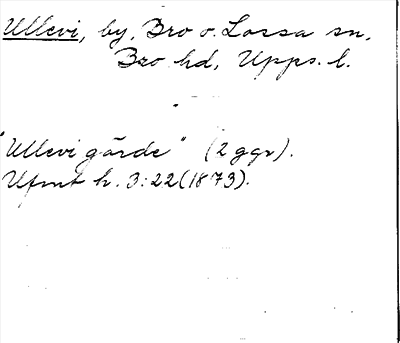 Ullevi, by, Bro o. Lossa sn,
Bro hd, Upps. l.
"Ullevi gärde" (2 ggr).
Ufmt h. 3:22 (1873).